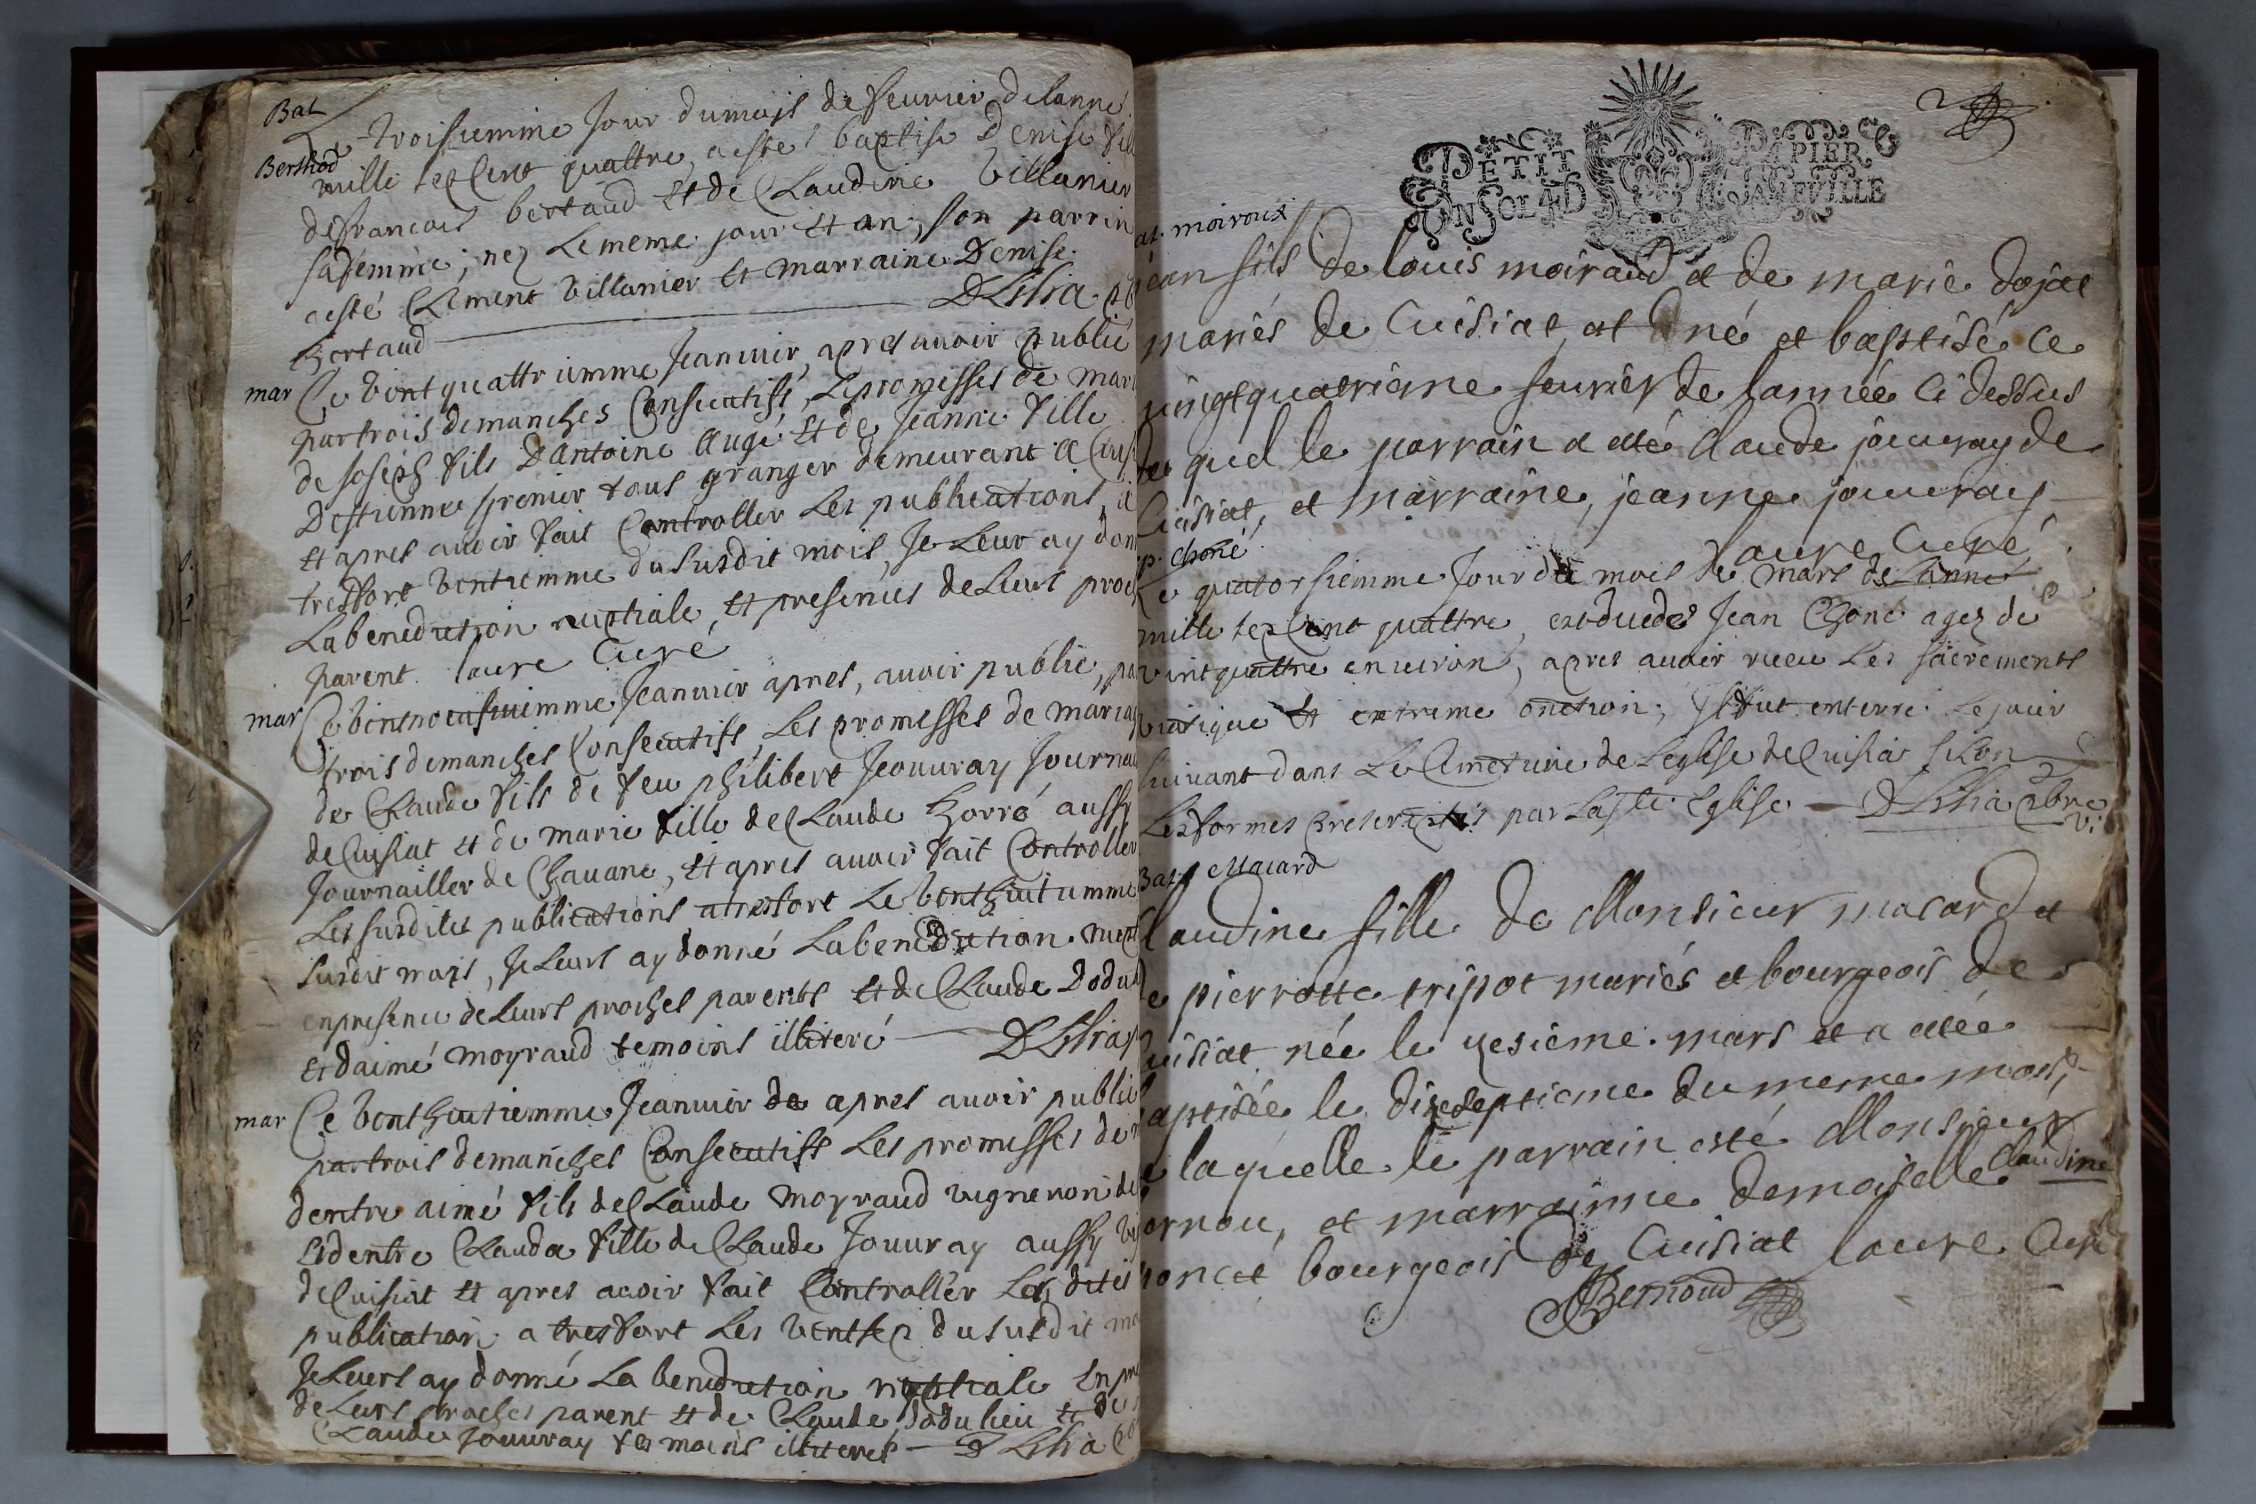 Bat
Berthod
Le troisiemme Jour du mois de feurier de lanné
mille sep Cent quattre, a esté baptise Denise fill
de francois bertaud et de Claudine Villanier
sa femme, nez le meme jour et an, son parrin
a esté Clement Villanier et marraine Denise
bertaud
D Lilia
mar
Ce vint quattriemme Jeanuier, apres auoir publié
par trois dimanches Consecutifs, les promesses de mari
de Joseph fils Dantoine Augé et de Jeanne fille
Destienne premier tous granger demeurant a Cuis
et apres auoir fait Controller les publications, a
tresfort vintiemme du susdit mois, Je leur ay don
La benediction nuptiale, et presences de leurs proch
parent laure Curé
mar
Ce vintneufuiemme Jeanuier apres, auoir publié, pa
trois dimanches Consecutifs, les promesses de mariag
de Claude fils de feu philibert Jeouuray Journa
de Cuisiat et de marie fille de Claude horré aussy
Journallier de Chauane, et apres auoir fait Controller
Les susdites publications a tresfort le vinthuitiemme
susdit mois, Je leurs ay donné La benediction nupt
en presence de leurs proches parents et de Claude Dodu
et daimé moyraud temoins illiteré D Lilia
mar
Ce vinthuitiemme Jeanuier de apres auoir publié
par trois dimanches Consecutifs les promesses de
dentre aimé fils de Claude moyraud vigneron de
et dentre Clauda fille de Claude Jouuray aussy vi
de Cuisiat et apres auoir fait Controller les dites
publication a tresfort les vintsez du susdit mo
Je leurs ay donné La benediction nuptiale en pre
de leurs proches parent et de Claude dodulieu et de
Claude Jouuray temoins illiteres D Lilia
PETIT PAPIER
UN SOL 4D LA FEVILLE
2
at. moiroux
jean fils de louis moiraud et de marie dojat
mariés de Cuisiat, est né et baptisé ce
vingtquatrieme feurier de lannée ci dessus
du quel le parrain a esté claude jouuray de
Cuisiat, et marraine, jeanne jouuray
laure Curé
p. choné
Le quatorsiemme Jour du mois de mars de lanné
mille sep Cent quattre, est deuedé Jean Choné agez de
vint quattre enuiron, apres auoir receu les sacrements
viatique et extreme onction, Il fut enterré le jour
suiuant dans le Cimetiere de Leglise de Cuisia selon
Les formes prescrites par La ste Eglise D Lilia pbre
vi
Bat Macard
Claudine fille de Monsieur macard et
de pierrotte tripot mariés et bourgeois de
Cuisiat née le zesieme mars et a estée
baptisée le dizeseptieme du meme mois,
de laquelle le parrain esté Monsieur
ornou, et marrainne demoiselle Claudine
poncet bourgeois de Cuisiat laure Curé
Bernoud